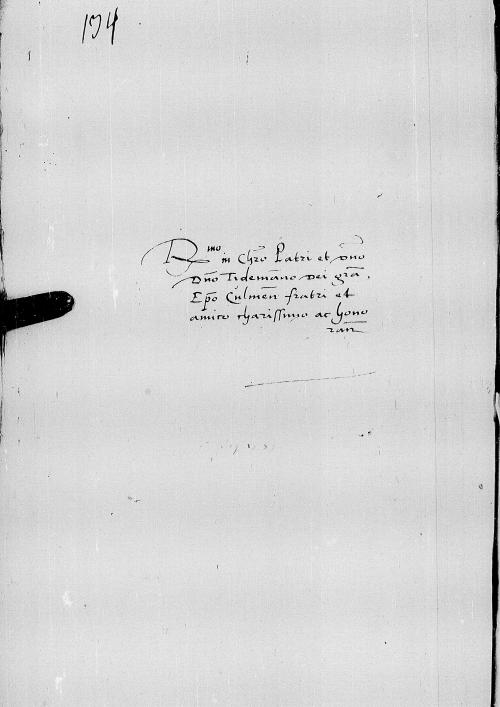 134
R^mo in Chr̃o Patri et Dño
Dño Tidemãno Dei grã.
Ep̃o Culmeñ fratri et
amico charissimo ac hono
rañ